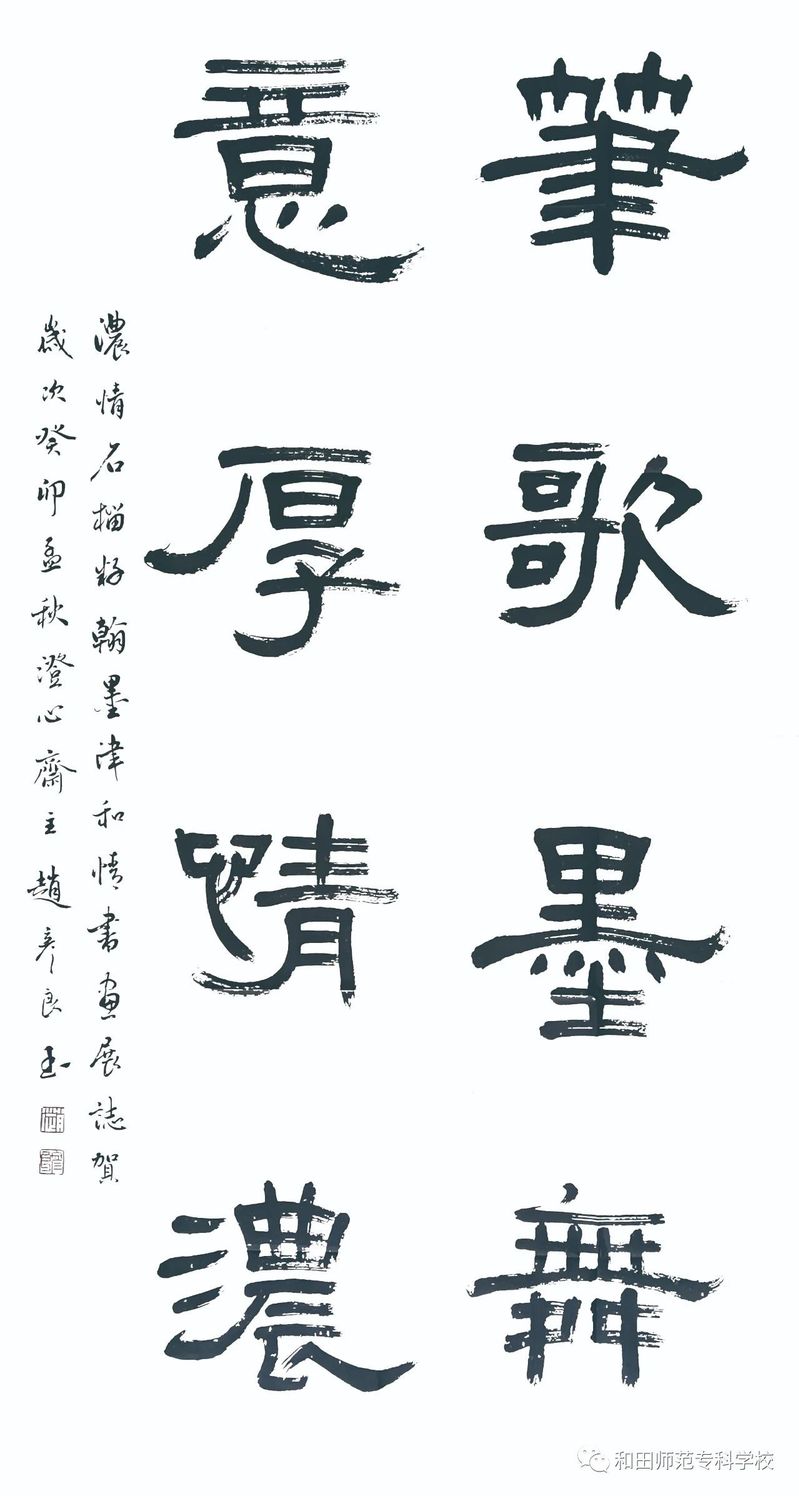 筆歌墨舞
意厚情濃
濃情石榴籽翰墨津和情書畫展誌賀
歲次癸卯孟秋澄心齋主趙彥良
和田师范专科学校